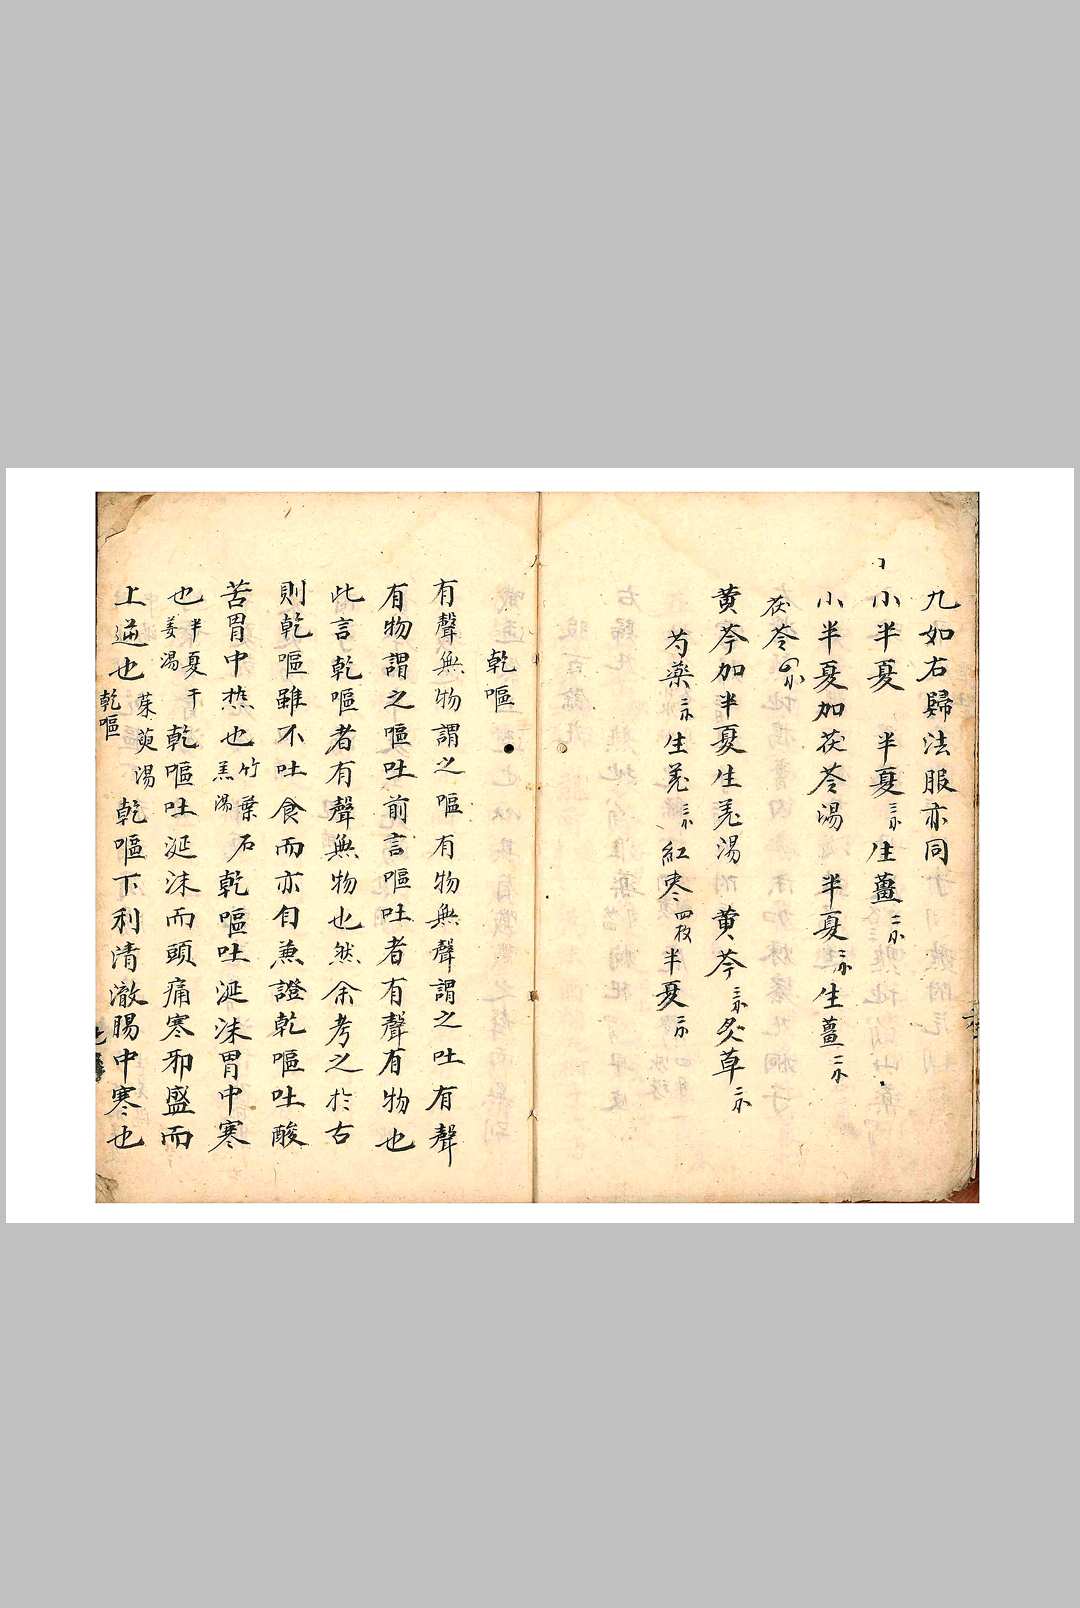 九如右歸法服亦同
小半夏 半夏三 生薑二
小半夏加茯苓湯 半夏三 生薑二
茯苓四
黄芩加半夏生姜湯 黄芩三 炙草二
芍藥二 生姜三 紅枣四枚 半夏二
乾嘔
有聲無物謂之嘔有物無聲謂之吐有聲
有物謂之嘔吐前言嘔吐者有聲有物也
此言乾嘔者有聲無物也然余考之於古
則乾嘔雖不吐食而亦自兼證乾嘔吐酸
苦胃中热也竹葉石羔湯乾嘔吐涎沫胃中寒
也半夏干姜湯乾嘔吐涎沫而頭痛寒邪盛而
上逆也茱萸湯乾嘔下利清澈腸中寒也
乾嘔